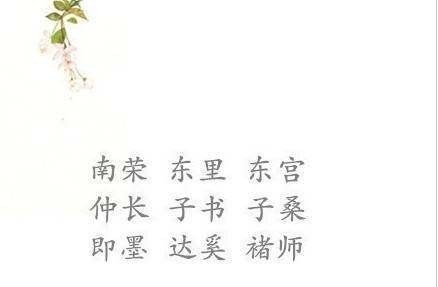 南荣 东里 东宫
仲长 子书 子桑
即墨 达奚 褚师